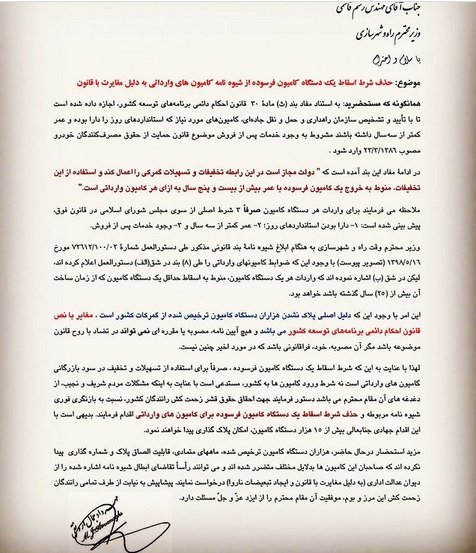 جناب آقای مهندس رستم قاسمی
وزیر محترم راه و شهرسازی
با سلام و احترام
موضوع: حذف شرط اسقاط یک دستگاه کامیون فرسوده از شیوه نامه کامیون های وارداتی به دلیل مغایرت با قانون
همانگونه که مستحضرید؛ به استناد مفاد بند (ث) مادهٔ ۳۰ قانون احکام دائمی برنامه‌های توسعه کشور، اجازه داده شده است
تا با تأیید و تشخیص سازمان راهداری و حمل و نقل جاده‌ای، کامیون‌های مورد نیاز که استانداردهای روز را دارا بوده و عمر
کمتر از سه‌سال داشته باشند مشروط به وجود خدمات پس از فروش موضوع قانون حمایت از حقوق مصرف‌کنندگان خودرو
مصوب ۲۳/۳/۱۳۸۶ وارد شود .
در ادامهٔ مفاد این بند آمده است که " دولت مجاز است در این رابطه تخفیفات و تسهیلات گمرکی را اعمال کند و استفاده از این
تخفیفات، منوط به خروج یک کامیون فرسوده با عمر بیش از بیست و پنج سال به ازای هر کامیون وارداتی است."
ملاحظه می فرمایند برای واردات هر دستگاه کامیون صرفاً ۳ شرط اصلی از سوی مجلس شورای اسلامی در قانون فوق،
پیش بینی شده است: ۱- دارا بودن استانداردهای روز؛ ۲- عمر کمتر از سه سال و ۳- وجود خدمات پس از فروش.
وزیر محترم وقت راه و شهرسازی به هنگام ابلاغ شیوه نامهٔ بند قانونی مذکور طی دستورالعمل شمارهٔ ۷۲۶۱۲/۱۰۰/۰۲ مورخ
۱۳۹۸/۵/۱۶ (تصویر پیوست) با وجود این که ضوابط کامیونهای وارداتی را طی (۸) بند در شق(الف) دستورالعمل اعلام کرده اند،
لیکن در شق (ب) اشاره نموده اند که واردات هر یک دستگاه کامیون، منوط به اسقاط حداقل یک دستگاه کامیون که از زمان ساخت
آن بیش از (۲۵) سال گذشته باشد خواهد بود.
این امر با وجود این که دلیل اصلی پلاک نشدن هزاران دستگاه کامیون ترخیص شده از گمرکات کشور است ، مغایر با نص
قانون احکام دائمی برنامه‌های توسعه کشور می باشد و هیچ آیین نامه، مصوبه یا مقرره ای نمی تواند در تضاد با روح قانون
موضوعه باشد مگر آن مصوبه، خود، فراقانونی باشد که در مورد اخیر چنین نیست.
لهذا با عنایت به این که شرط اسقاط یک دستگاه کامیون فرسوده ، صرفاً برای استفاده از تسهیلات و تخفیف در سود بازرگانی
کامیون های وارداتی است نه شرط ورود کامیون ها به کشور، مستدعی است با عنایت به اینکه مشکلات مردم شریف و نجیب، از
دغدغه های آن مقام محترم می باشد دستور فرمایند جهت احقاق حقوق قشر زحمت کش رانندگان کشور، نسبت به بازنگری فوری
شیوه نامه مربوطه و حذف شرط اسقاط یک دستگاه کامیون فرسوده برای کامیون های وارداتی اقدام فرمایند. بدیهی است با
این اقدام جهادی جنابعالی بیش از ۱۵ هزار دستگاه کامیون، امکان پلاک گذاری پیدا خواهند نمود.
مزید استحضار درحال حاضر، هزاران دستگاه کامیون ترخیص شده، ماههای متمادی، قابلیت الصاق پلاک و شماره گذاری پیدا
نکرده اند که صاحبان این کامیون ها بدلایل مختلف متضرر شده اند و می توانند رأساً تقاضای ابطال شیوه نامه اشاره شده را از
دیوان عدالت اداری (به دلیل مغایرت با قانون و ایجاد تبعیضات ناروا) درخواست نمایند. پیشاپیش به نیابت از طرف تمامی رانندگان
زحمت کش این مرز و بوم، موفقیت آن مقام محترم را از ایزد عزّ و جلّ مسئلت دارد.